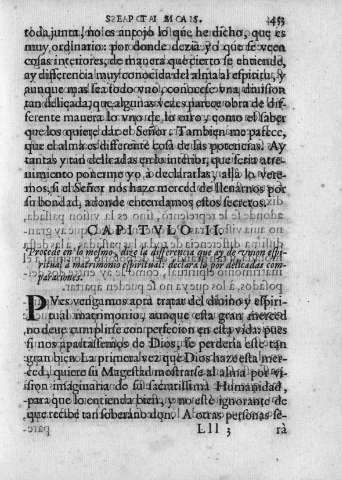 453
toda junta, no es antojo lo que he dicho, que es
muy ordinario: por donde dezia yo que se veen
cosas interiores, de manera que cierto se entiende,
ay diferencia muy conocida del alma al espiritu, y
aunque mas sea todo vno, conocese vna diuision
tan delicada, que algunas vezes parece obra de dif-
ferente manera lo vno de lo otro, como el saber
que los quiere dar el Señor. Tambien me parece,
que el alma es differente cosa de las potencias. Ay
tantas y tan delicadas en lo interior, que seria atre-
uimiento ponerme yo à declararlas, allà lo vere-
mos, si el Señor nos haze merced de lleuarnos por
su bondad, adonde entendamos estos secretos.
CAPITVLO II.
Procede en lo mesmo, dize la differencia que ay de vnion espi-
ritual a matrimonio espiritual: declara lo por delicadas com-
paraciones.
PVes vengamos aora tratar del diuino y espiri-
tual matrimonio, aunque esta gran merced
no deue cumplirse con perfecion en esta vida: pues
si nos apartassemos de Dios, se perderia este tan
gran bien. La primera vez que Dios haze esta mer-
ced, quiere su Magestad mostrarse al alma por vi-
sion imaginaria de su sacratissima Humanidad,
para que lo entienda bien, y no estè ignorante de
que recibe tan soberano don. A otras personas se-
Lll 3 rà